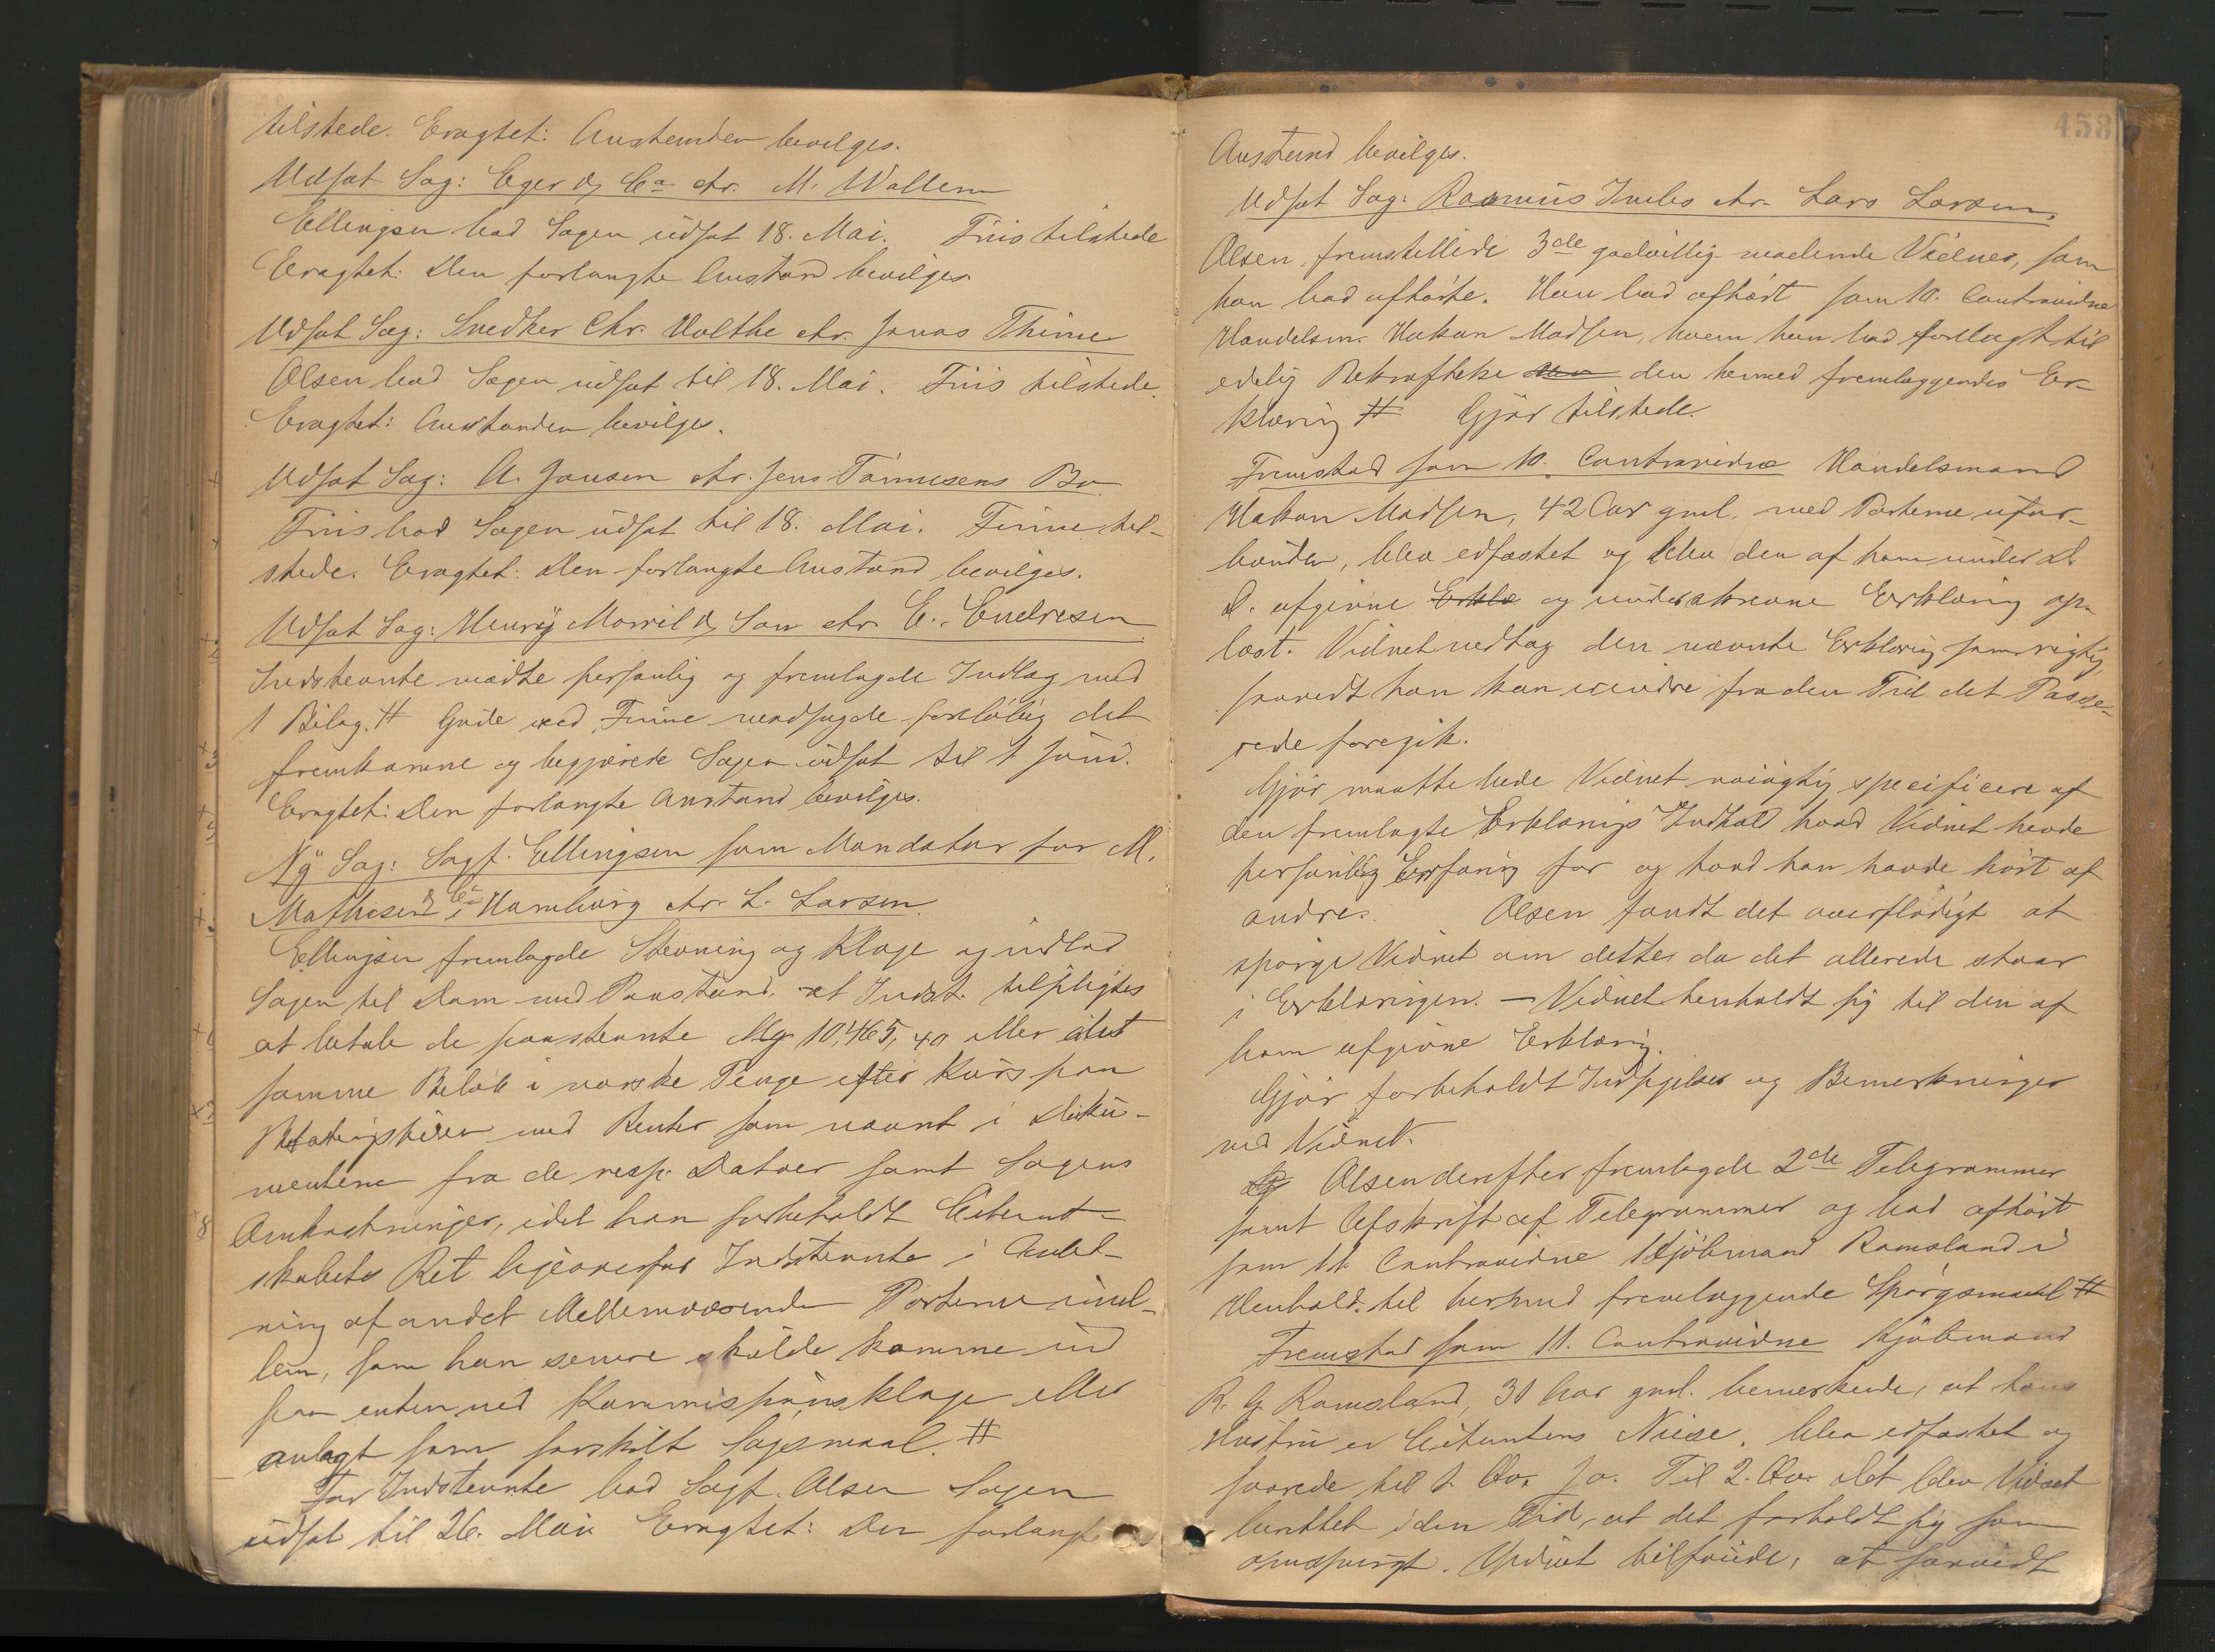 tilstede. Eragtet: Anstanden bevilges.
Udsat Sag: Eger & Co ctr. M. Wallem
Ellingsen bad Sagen udsat 18. Mai. Friis tilstede
Eragtet: Den forlangte Anstand bevilges
Udsat Sag: Snedker Chr. Holthe ctr. Jonas Thime
Olsen bad Sagen udsat til 18. Mai. Friis tilstede.
Eragtet: Anstanden bevilges.
Udsat Sag: A. Jansen ctr. Jens Tönnesens Bo
Friis bad Sagen udsat til 18. Mai. Finne til-
stede. Eragtet: Den forlangte Anstand bevilges.
Udsat Sag: Henry Morril & Son ctr. E. Endresen
Indstevnte mødte personlig og fremlagde Indlæg med
1 Bilag. # Gude ved Finne modsagde foreløbig det
fremkomne og begjærede Sagen udsat til 1 Juni.
Eragtet: Den forlangte Anstand bevilges.
Ny Sag: Sagf. Ellingsen som Mandatar for M.
Mathiesen & Co i Hamburg ctr. L. Larsen.
Ellingsen fremlagde Stevning og Klage og indlod
Sagen til Dom med Paastand at Indst. tilpligtes
at betale de paastevnte Mg 10,465,40 eller
samme Beløb i norske Penge efter Kurs paa
Betalingstiden med Renter som nævnt i Doku-
menterne fra de resp. Datoer samt Sagens
Omkostninger, idet han forbeholdt Citant-
skabets Ret ligeoverfor Indstevnte i Anled-
ning af andet Mellemværende Parterne imel-
lem, som han senere skulde komme ind
paa enten ved Kommissionsklage eller
anlagt som særskilt Søgsmaal. #
For Indstevnte bad Sagf. Olsen Sagen
udsat til 26. Mai Eragtet: Den forlangte
458
Anstand bevilges.
Udsat Sag: Rasmus ctr. Lars Larsen.
Olsen fremstillede 3de godvillig mødende Vidner, som
han bad afhørte. Han bad afhørt som 10. Contravidne
Handelsm. Hakon Madsen, hvem han bad forelagt til
edelig Bekræftelse den hermed fremlæggendes Er-
klæring # Gjør tilstede.
Fremstod som 10. Contravidne Handelsmand
Hakon Madsen, 42 Aar gml. med Parterne ufor-
bunden, blev edfæstet og blev den af ham under
D. afgivne Erklæ og underskrevne Erklæring op-
læst. Vidnet vedtog den nævnte Erklæring som rigtig,
saavidt han kan erindre fra den Tid det Passe-
rede foregik.
Gjør maatte bede Vidnet nøiagtig specificere af
den fremlagte Erklærings Indhold hvad Vidnet havde
personlig Erfaring for og hvad han havde hørt af
andre. Olsen fandt det overflødigt at
spørge Vidnet om dette, da det allerede staar
i Erklæringen. — Vidnet henholdt sig til den af
ham afgivne Erklæring.
Gjør forbeholdt Indsigelser og Bemerkninger
ved Vidnet.
Olsen derefter fremlagde 2de Telegrammer
samt Afskrift af Telegrammer og bad afhørt
som 11. Contravidne Kjøbmand Ramsland i
Henhold til hermed fremlæggende Spørgsmaal #
Fremstod som 11. Contravidne Kjøbmand
R. G. Ramsland, 30 Aar gml. bemerkende, at hans
Hustru er Citantens Niese, blev edfæstet og
svarede til 1. Qv. Ja. Til 2. Qv. Det blev Vidnet
berettet i den Tid, at det forholdt sig som
omspurgt. Vidnet tilføiede, at saavidt